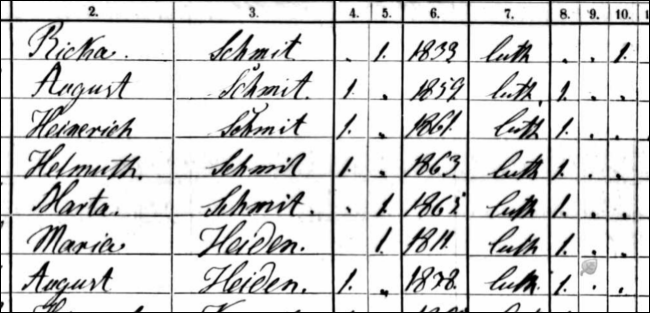 2. 3. 4. 5. 6. 7. 8. 9. 10.
Ricka. Schmit . 1. 1833 luth . . 1.
August Schmit. 1. . 1859 luth. 1. . .
Heinerich Schmit 1. . 1861. luth. 1. . .
Helmuth. Schmit 1. . 1863. luth. 1. . .
Marta. Schmit. . 1. 1865. luth. 1. . .
Maria Heiden. 1. 1811. luth. 1. . .
August Heiden. 1. . 1838. luth. 1. . .